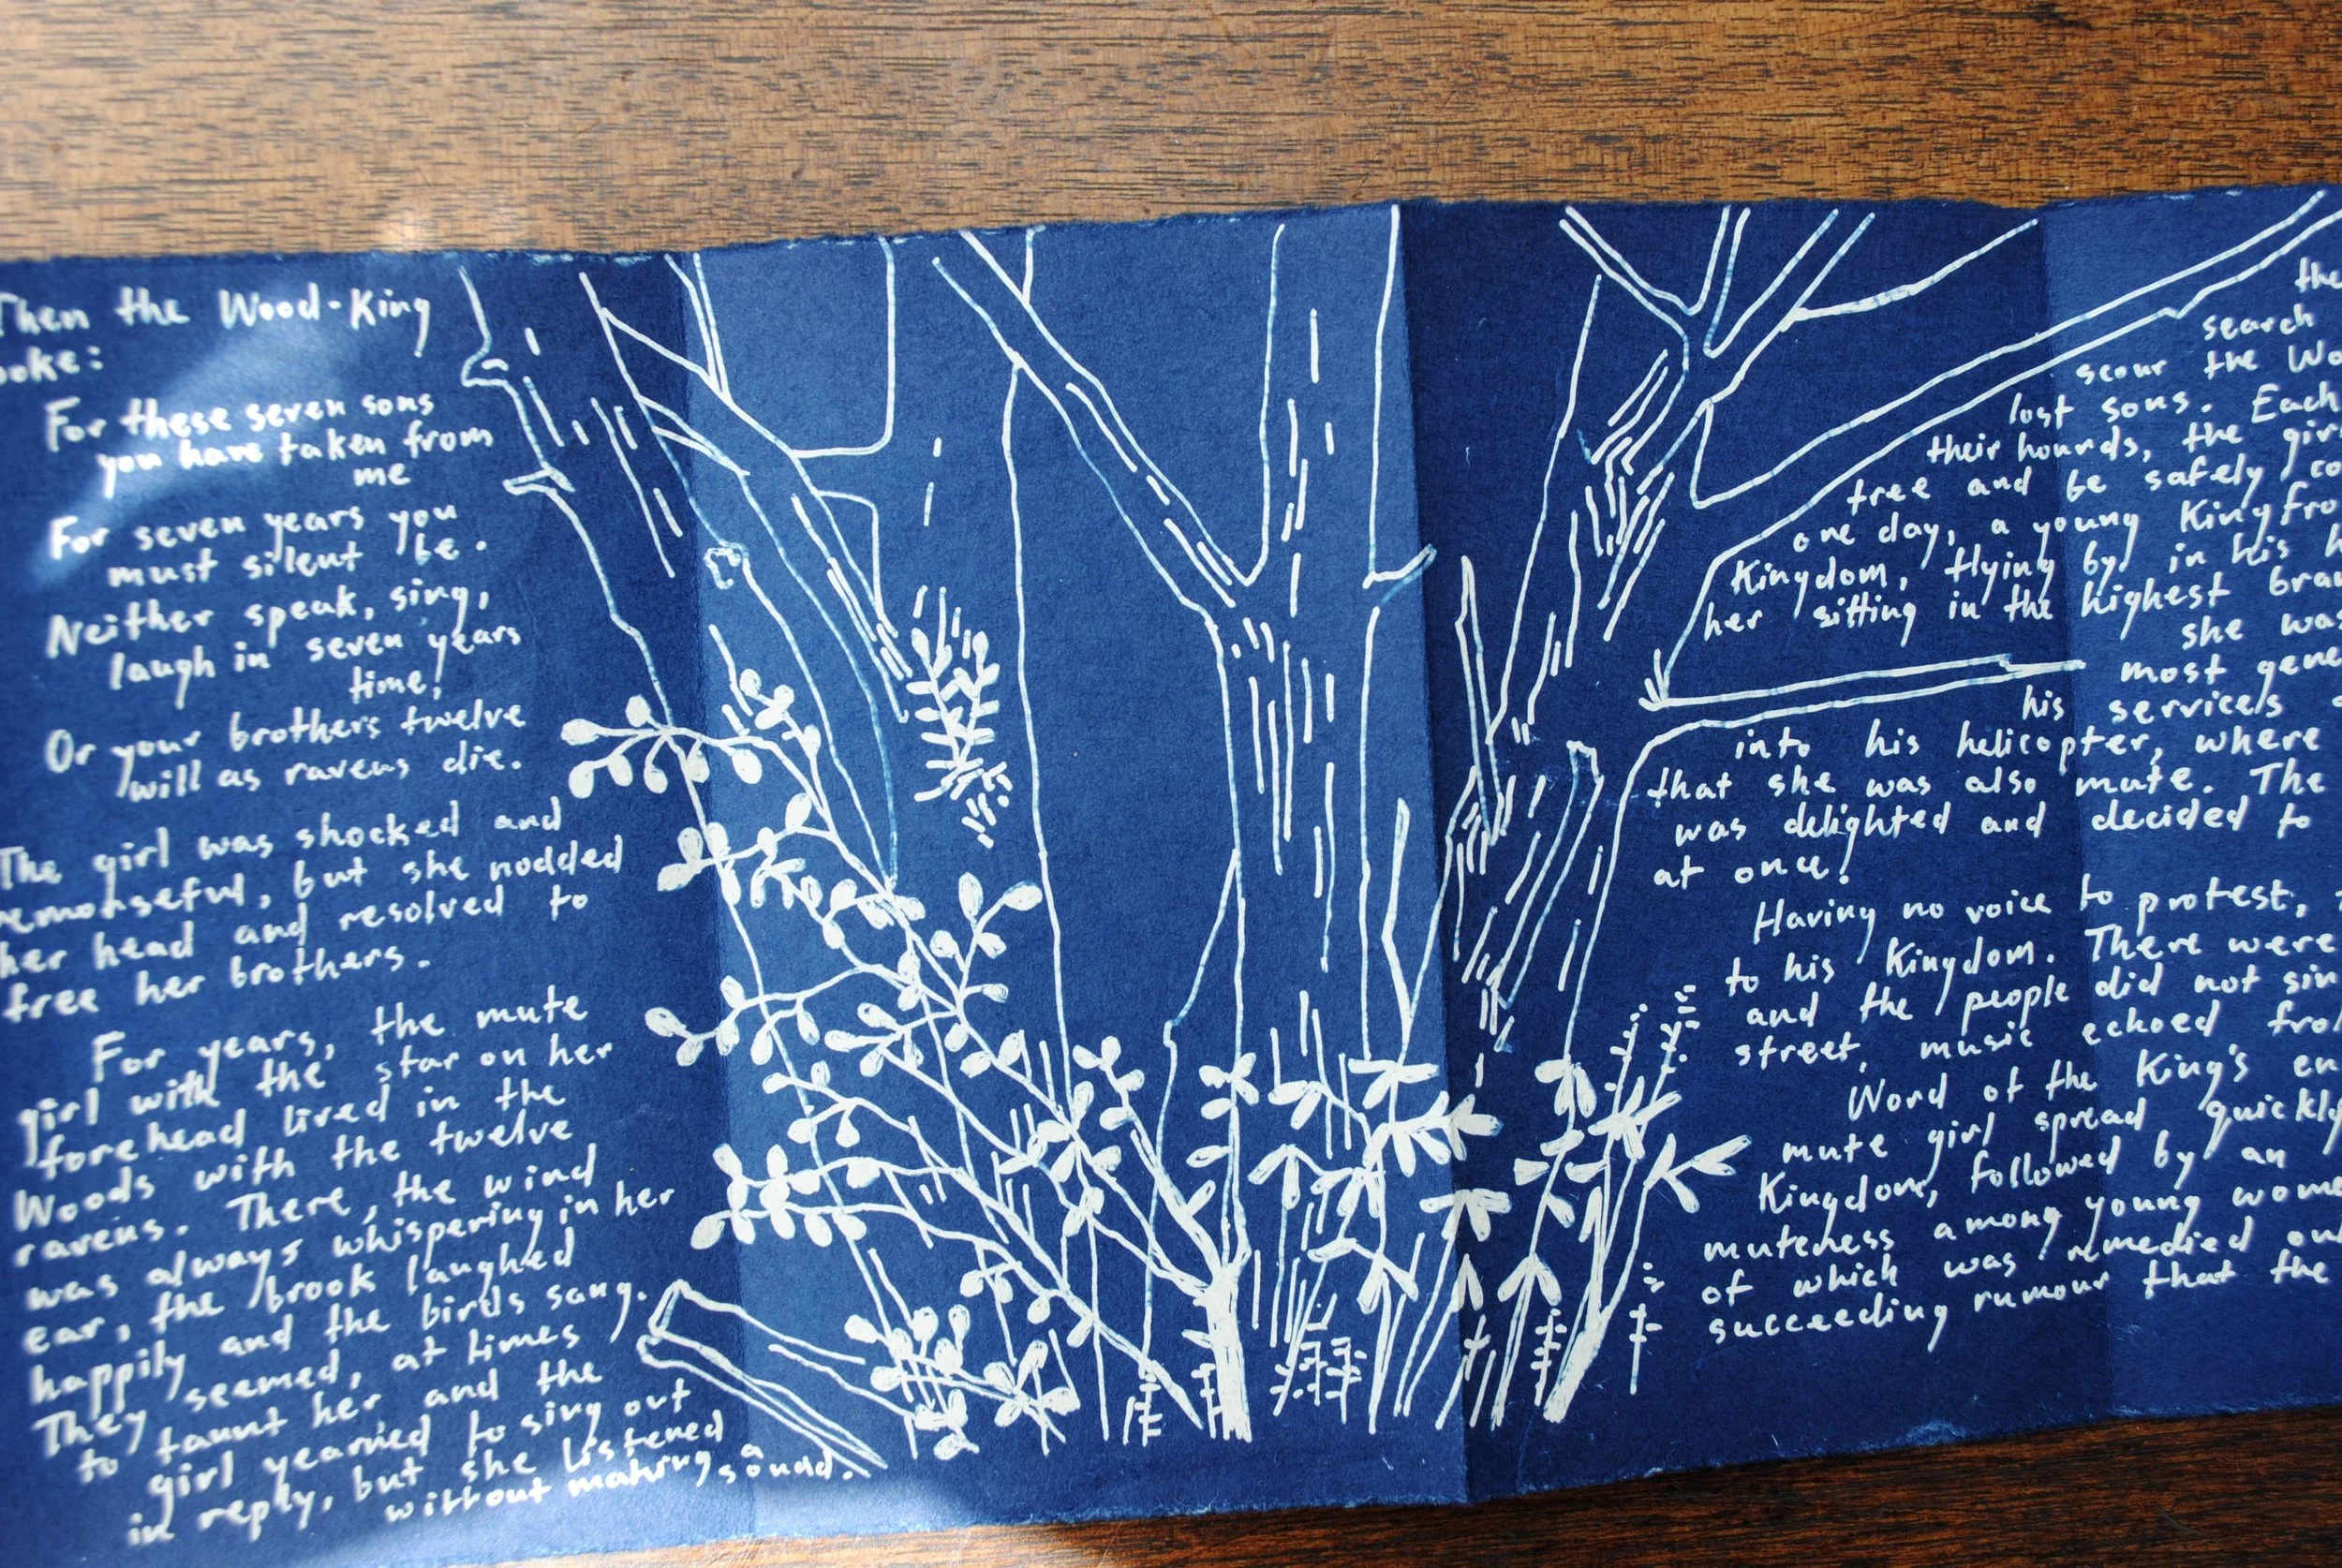 Then the Wood-King
oke:
For these seven sons
you have taken from
me
For seven years you
must silent be.
Neither speak, sing,
laugh in seven years
time!
Or your brothers twelve
will as ravens die.
The girl was shocked and
remorseful, but she nodded
her head and resolved to
free her brothers.
For years, the mute
girl with the star on her
forehead lived in the
Woods with the twelve
ravens. There, the wind
was always whispering in her
ear, the brook laughed
happily and the birds sang.
They seemed, at times
to taunt her and the
girl yearned to sing out
in reply, but she listened
without making a sound.
the
search
scour the Wo
lost sons. Each
their hounds, the girl
tree and be safely co
one day, a young King fro
Kingdom, flying by in his h
her sitting in the highest bran
she was
most gene
his services
into his helicopter, where
that she was also mute. The
was delighted and decided to
at once!
Having no voice to protest,
to his Kingdom. There were
and the people did not sin
street, music echoed fro
Word of the King's en
mute girl spread quickly
Kingdom, followed by an
muteness among young wome
of which was remedied on
succeeding rumour that the